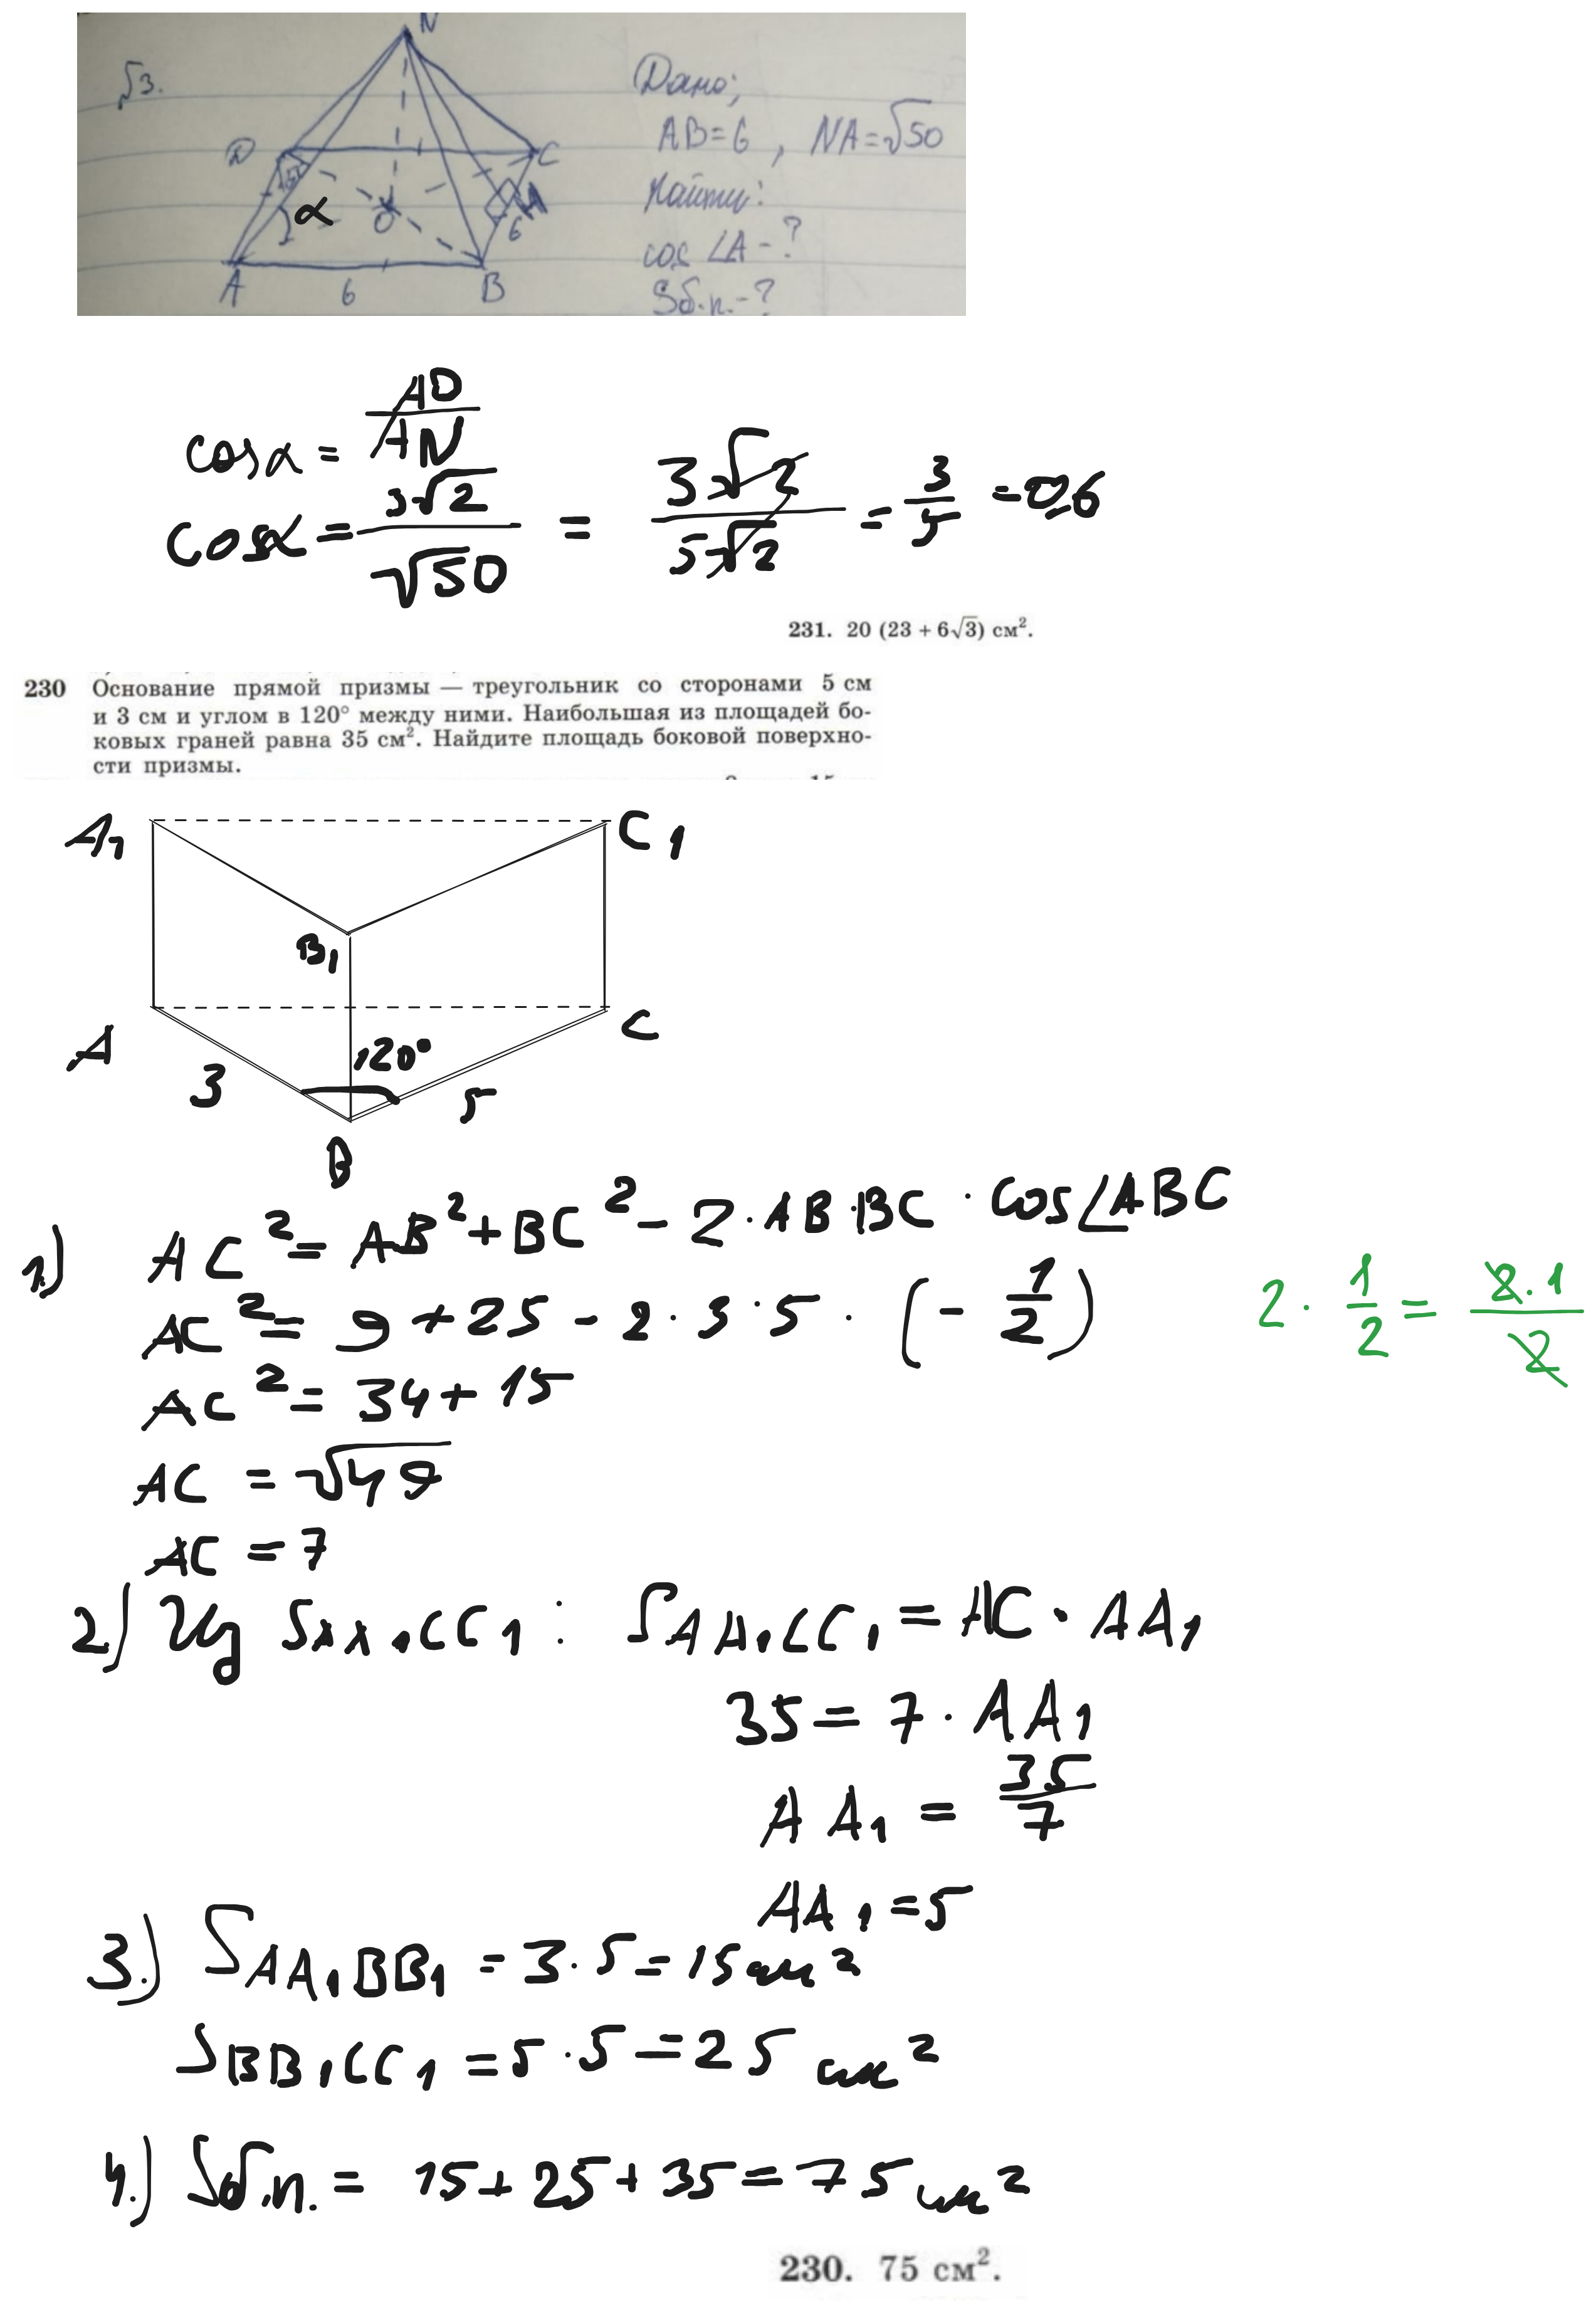 N
√3.
Дано;
D
C
AB=6 , NA=√50
Найти:
α
O
H
6
cos ∠A-?
A
6
B
Sб.п.-?
cosα = AO/AN
cosα = 3√2/√50 = 3√2/5√2 = 3/5 = 0,6
231. 20 (23 + 6√3) см².
230 Основание прямой призмы — треугольник со сторонами 5 см
и 3 см и углом в 120° между ними. Наибольшая из площадей бо-
ковых граней равна 35 см². Найдите площадь боковой поверхно-
сти призмы.
A₁
C₁
B₁
A
C
120°
3
5
B
1.) AC² = AB² + BC² - 2·AB·BC·cos∠ABC
AC² = 9 + 25 - 2·3·5·(-1/2)
2·1/2 = 2·1/2
AC² = 34 + 15
AC = √49
AC = 7
2.) Из SAA₁CC₁ : SAA₁CC₁ = AC · AA₁
35 = 7 · AA₁
AA₁ = 35/7
AA₁ = 5
3.) SAA₁BB₁ = 3·5 = 15 см²
SBB₁CC₁ = 5·5 = 25 см²
4.) Sб.п. = 15 + 25 + 35 = 75 см²
230. 75 см².